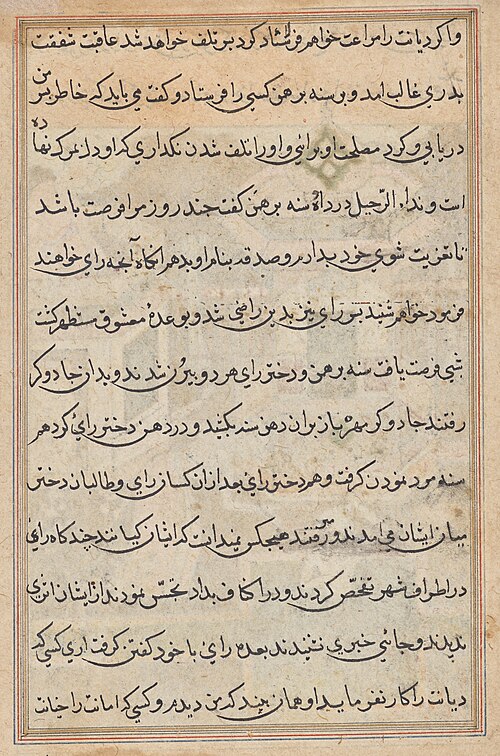 واکر دیانت را مراعت خواهم فرزند شاد کرد بر تلف خواهد شد عاقبت شفقت
بدری غالب امد و بر سنه برهمن کسی را فرستاد و کفت می باید که خاطر بسر من
دریابی و کرد مصلحت او برائی و او را تلف شدن نکداری که او دل مرکنها ده
است و نداء الرحیل در داده سنه برهمن کفت جند روز مرا فرصت باشد
تا تعزیت شوی خود بدارم و صدقه بنام او بدهم انکاه آنجه رای خواهند
فرمود خواهم شنید بسر رای نیز بدین راضی شد و بوعدهٔ معشوق مستظهر کشت
شبی فرصت یافت سنه برهمن و دختر رای هر دو بیرون شدند و بدان جادوکر
رفتند جادوکر مهره باز بران دهن سنه بکشید و در دهن دختر رای کرد هم
سنه مرد نمودن کرفت و هم دختر رای بعد ازان کسان رای و طالبان دختر
میان ایشان می امدند و میرفتند هیجکس نمیدانست که ایشان کیانند جند کاه رای
در اطراف شهر تفحص کردند و در اکناف بداد تجسس نمودند از ایشان اثری
ندیدند و جائی خبری نشنیدند بعده رای با خود کفتن کرفت اری کسی که
دیانت را کار نفرماید او همان بیند که من دیدم و کسی که امانت را خیانت